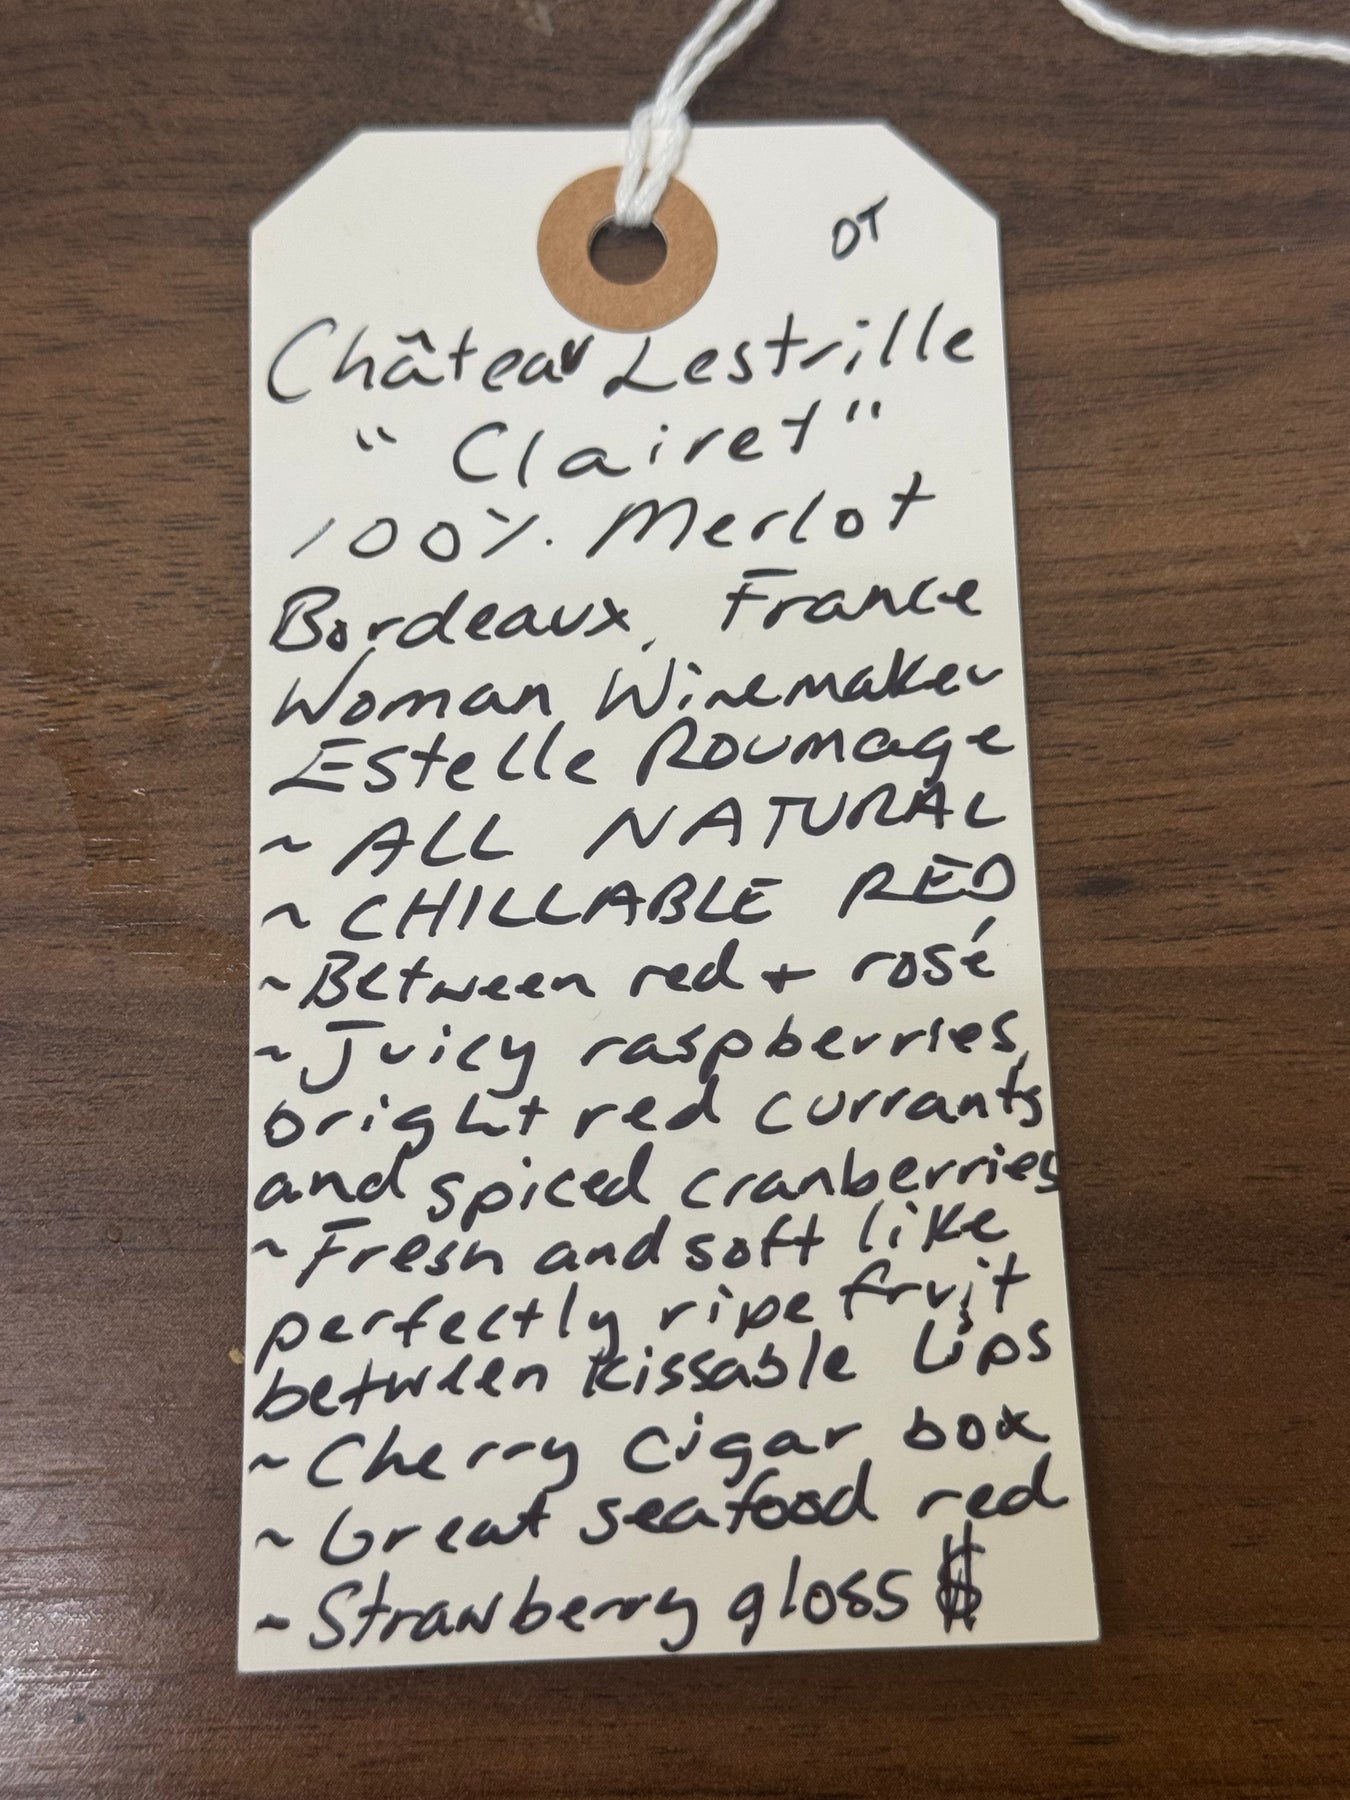 OT
Château Lestrille
"Clairet"
100% Merlot
Bordeaux, France
Woman Winemaker
Estelle Roumage
~ ALL NATURAL
~ CHILLABLE RED
~ Between red + rosé
~ Juicy raspberries,
bright red currants
and spiced cranberries
~ Fresh and soft like
perfectly ripe fruit
between kissable lips
~ Cherry cigar box
~ Great seafood red
~ Strawberry gloss $